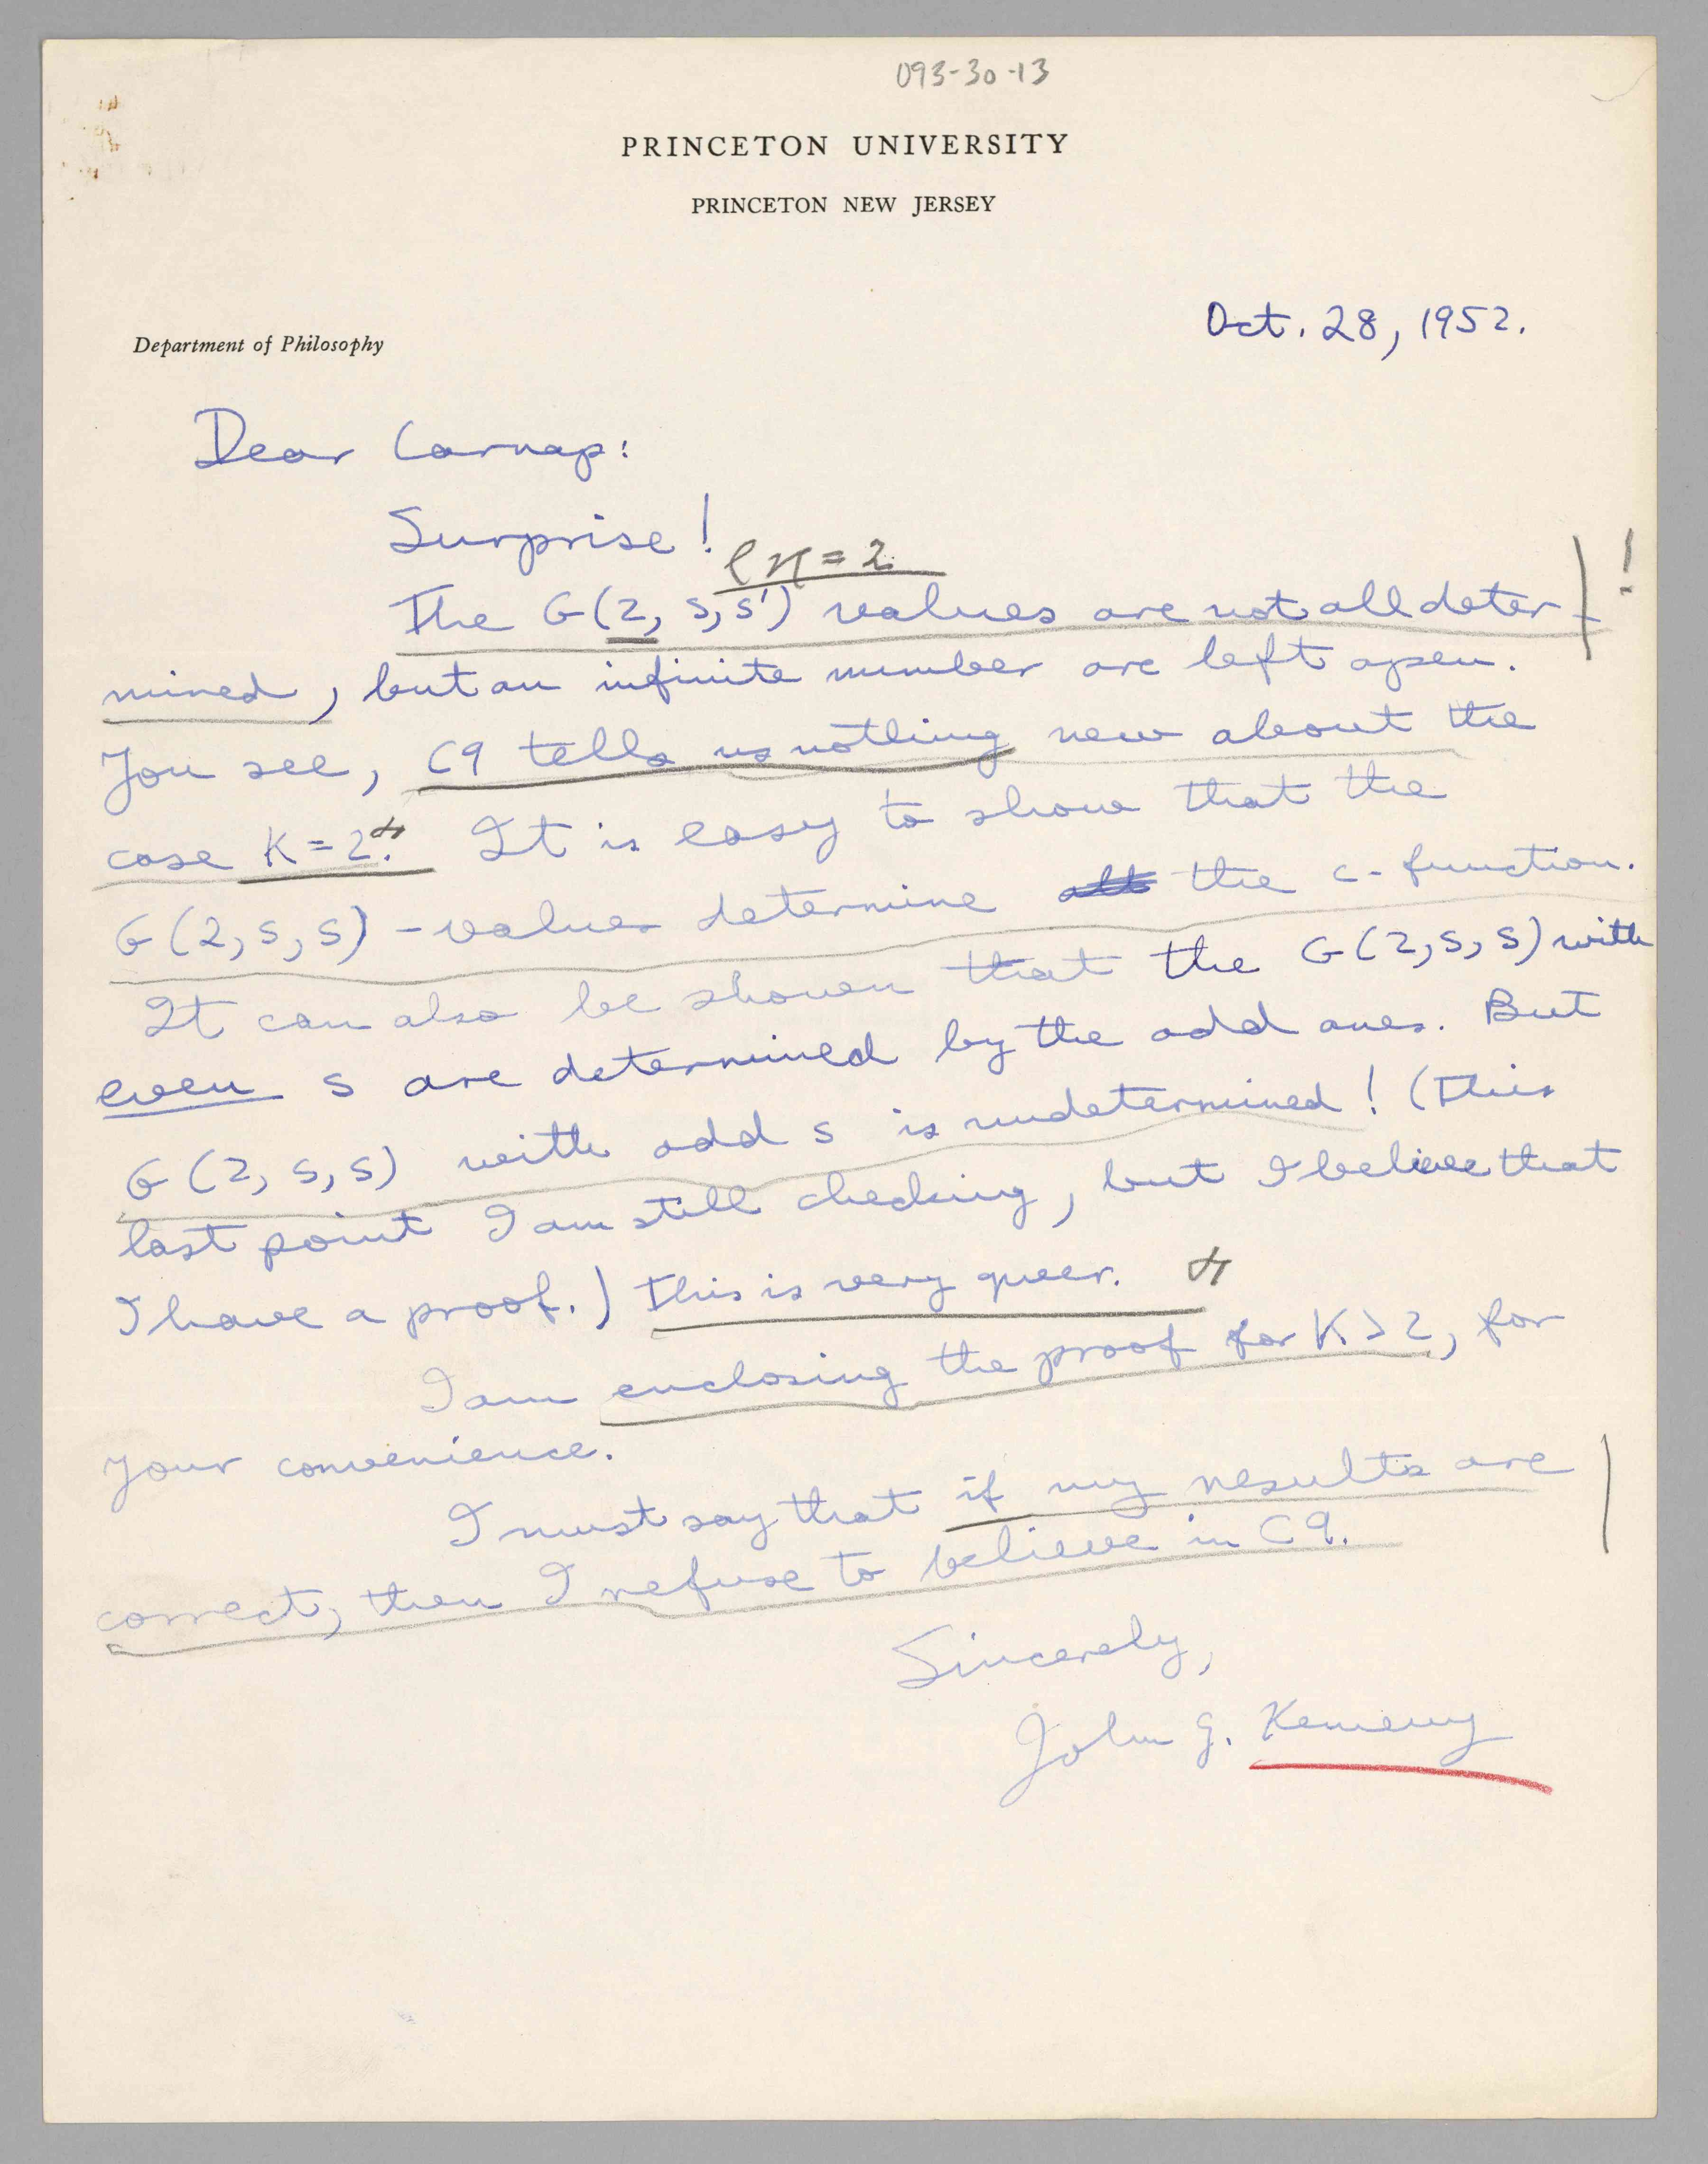 093-30-13
PRINCETON UNIVERSITY
PRINCETON NEW JERSEY
Oct. 28, 1952.
Department of Philosophy
Dear Carnap:
Surprise!
κ = 2
The G(2, s, s') values are not all deter- !
mined, but an infinite number are left open.
You see, C9 tells us nothing new about the
case K = 2. It is easy to show that the
G(2, s, s) - values determine the c-function.
It can also be shown that the G(2, s, s) with
even s are determined by the odd ones. But
G(2, s, s) with odd s is undetermined! (This
last point I am still checking, but I believe that
I have a proof.) This is very queer.
I am enclosing the proof for K > 2, for
your convenience.
I must say that if my results are
correct, then I refuse to believe in C9.
Sincerely,
John G. Kemeny